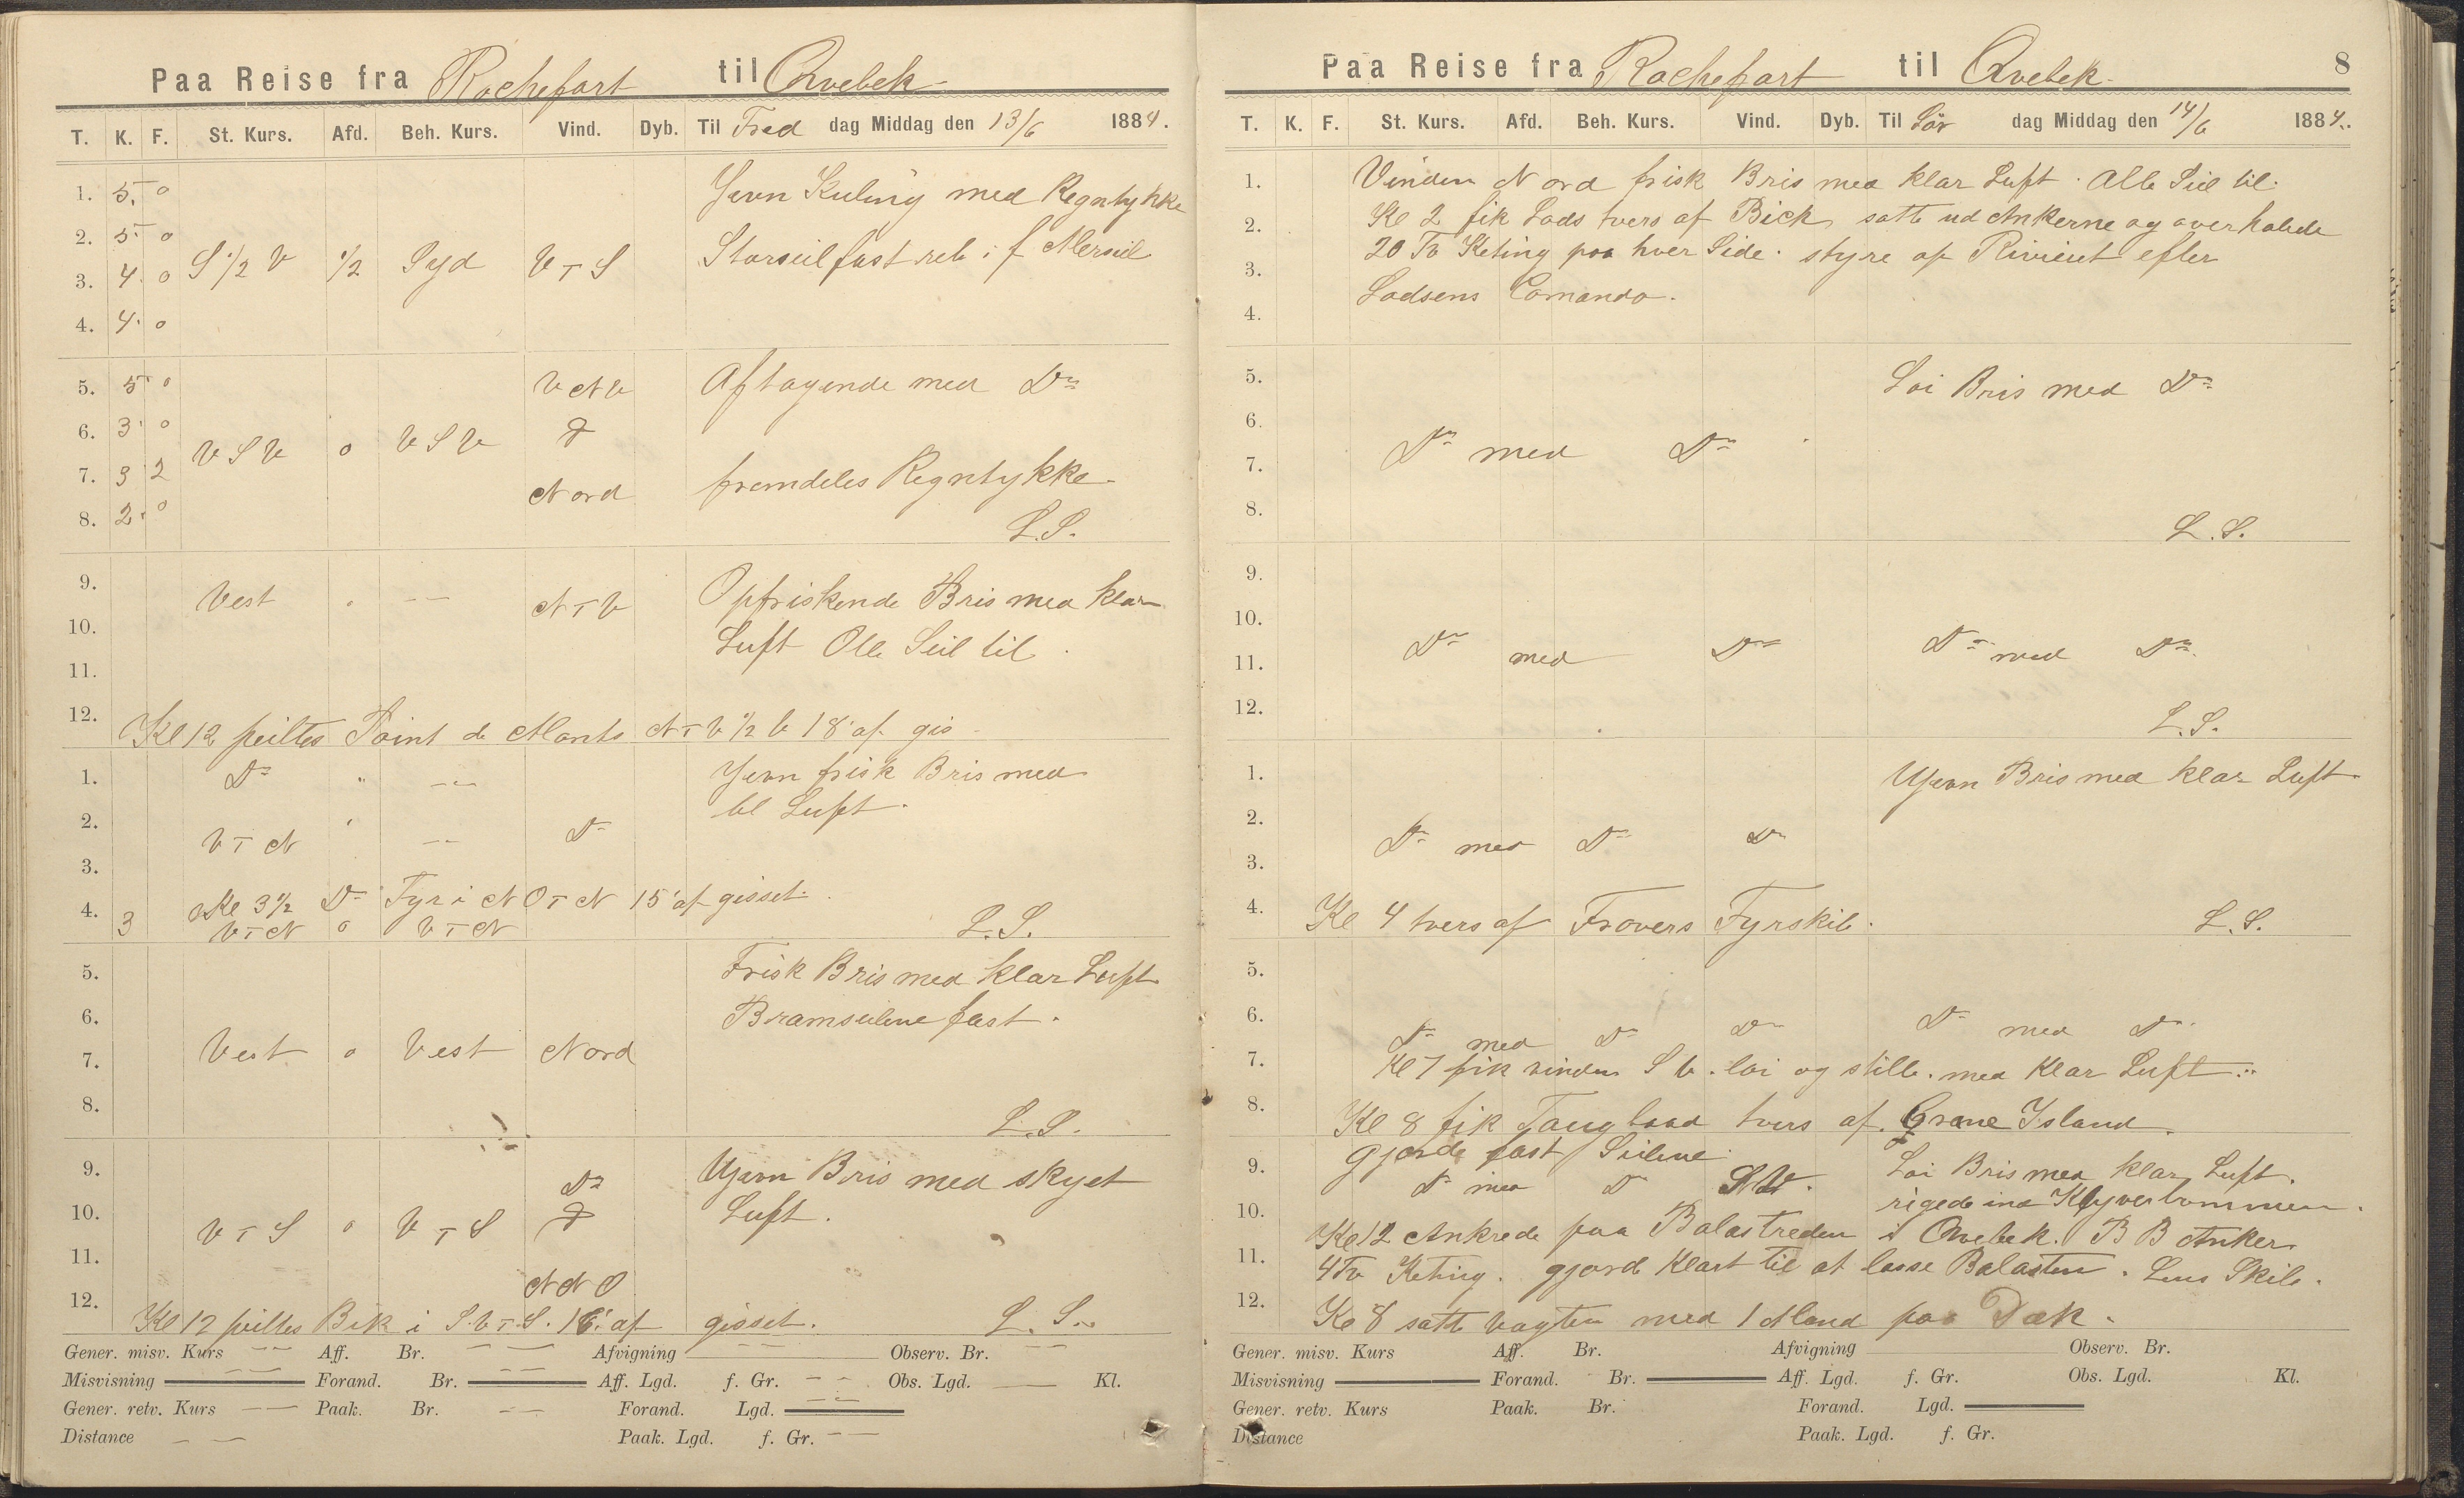 Paa Reise fra Rochefort til Qvebek
T. K. F. St. Kurs. Afd. Beh. Kurs. Vind. Dyb. Til Fred dag Middag den 13/6 1884.
1. 5. 0 Jevn Kuling med Regntykke
2. 5. 0
3. 4. 0 S 1/2 V 1/2 Syd V T S Storseil fast reb i f Merseil
4. 4. 0
5. 5. 0 V N V Aftagende med Do
6. 3. 0 &
7. 3 2 V S V 0 V S V fremdeles Regntykke
8. 2. 0 Nord
L.S.
9. Vest " — — N T V Opfriskende Bris med klar
10. Luft Alle Seil til.
11.
12. Kl 12 peiltes Point de Monts N T V 1/2 V 18' af gis
1. Do " — — Jevn frisk Bris med
2. V T N " — — Do kl Luft.
3.
Kl 3 1/2 Do Fyr i N O T N 15' af gisset.
4. 3 V T N 0 V T N L.S.
5. Frisk Bris med klar Luft
6. Bramseilene fast.
7. Vest 0 Vest Nord
8. L.S.
9. Do Ujevn Bris med skyet
10. V T S 0 V T S & Luft.
11. N N O
12. Kl 12 peiltes Bik i S.V.T.S. 16' af gisset. L.S.
Gener. misv. Kurs — — Aff. Br. — — Afvigning — — Observ. Br. — —
Misvisning Forand. Br. — — Aff. Lgd. f. Gr. — — Obs. Lgd. — Kl.
Gener. retv. Kurs — — Paak. Br. — — Forand. Lgd. — —
Distance — — Paak. Lgd. f. Gr. — —
Paa Reise fra Rochefort til Qvebek. 8
T. K. F. St. Kurs. Afd. Beh. Kurs. Vind. Dyb. Til Lör dag Middag den 14/6 1884.
1. Vinden Nord frisk Bris med klar Luft. Alle Seil til.
2. Kl 2 fik Lods tvers af Bick, satte ud Ankerne og overhalede
3. 20 Fv Keting paa hver Side. styre op Rivieret efter
4. Lodsens Comando.
5. Loi Bris med Do
6.
7. Do med Do
8. L.S.
9.
10.
11. Do med Do Do med Do
12. L.S.
1. Ujevn Bris med klar Luft.
2.
3. Do med Do Do
4. Kl 4 tvers af Travers Fyrskib. L.S.
5.
6. Do med Do Do Do med Do
7. Kl 7 fik vinden S V. loi og stille. med klar Luft.
8. Kl 8 fik Taugbaad tvers af Crane Island.
gjorde fast Seilene.
9. Do med Do SW. Loi Bris med klar Luft.
10. rigede ind Klyverbommen.
Kl 12 Ankrede paa Balastreden i Qvebek. B B Anker
11. 4 Fv Keting. gjord klart til at losse Balasten. Lens Skib.
12. Kl 8 satte Vagten med 1 Mand paa Dæk.
Gener. misv. Kurs Aff. Br. Afvigning Observ. Br.
Misvisning Forand. Br. Aff. Lgd. f. Gr. Obs. Lgd. Kl.
Gener. retv. Kurs Paak. Br. Forand. Lgd.
Distance Paak. Lgd. f. Gr.